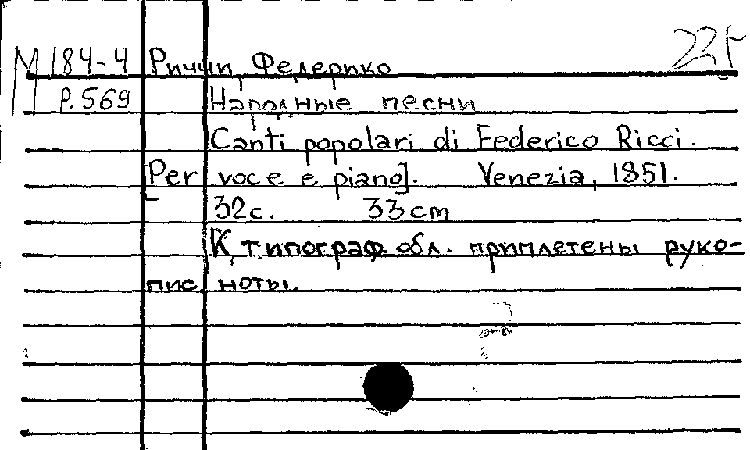 М 184-4 Риччи, Федерико
Р.569 Народные песни
Canti popolari di Federico Ricci.
[Per voce e piano]. Venezia, 1851.
32с. 33cm
К типограф. обл. приплетены руко-
пис. ноты.